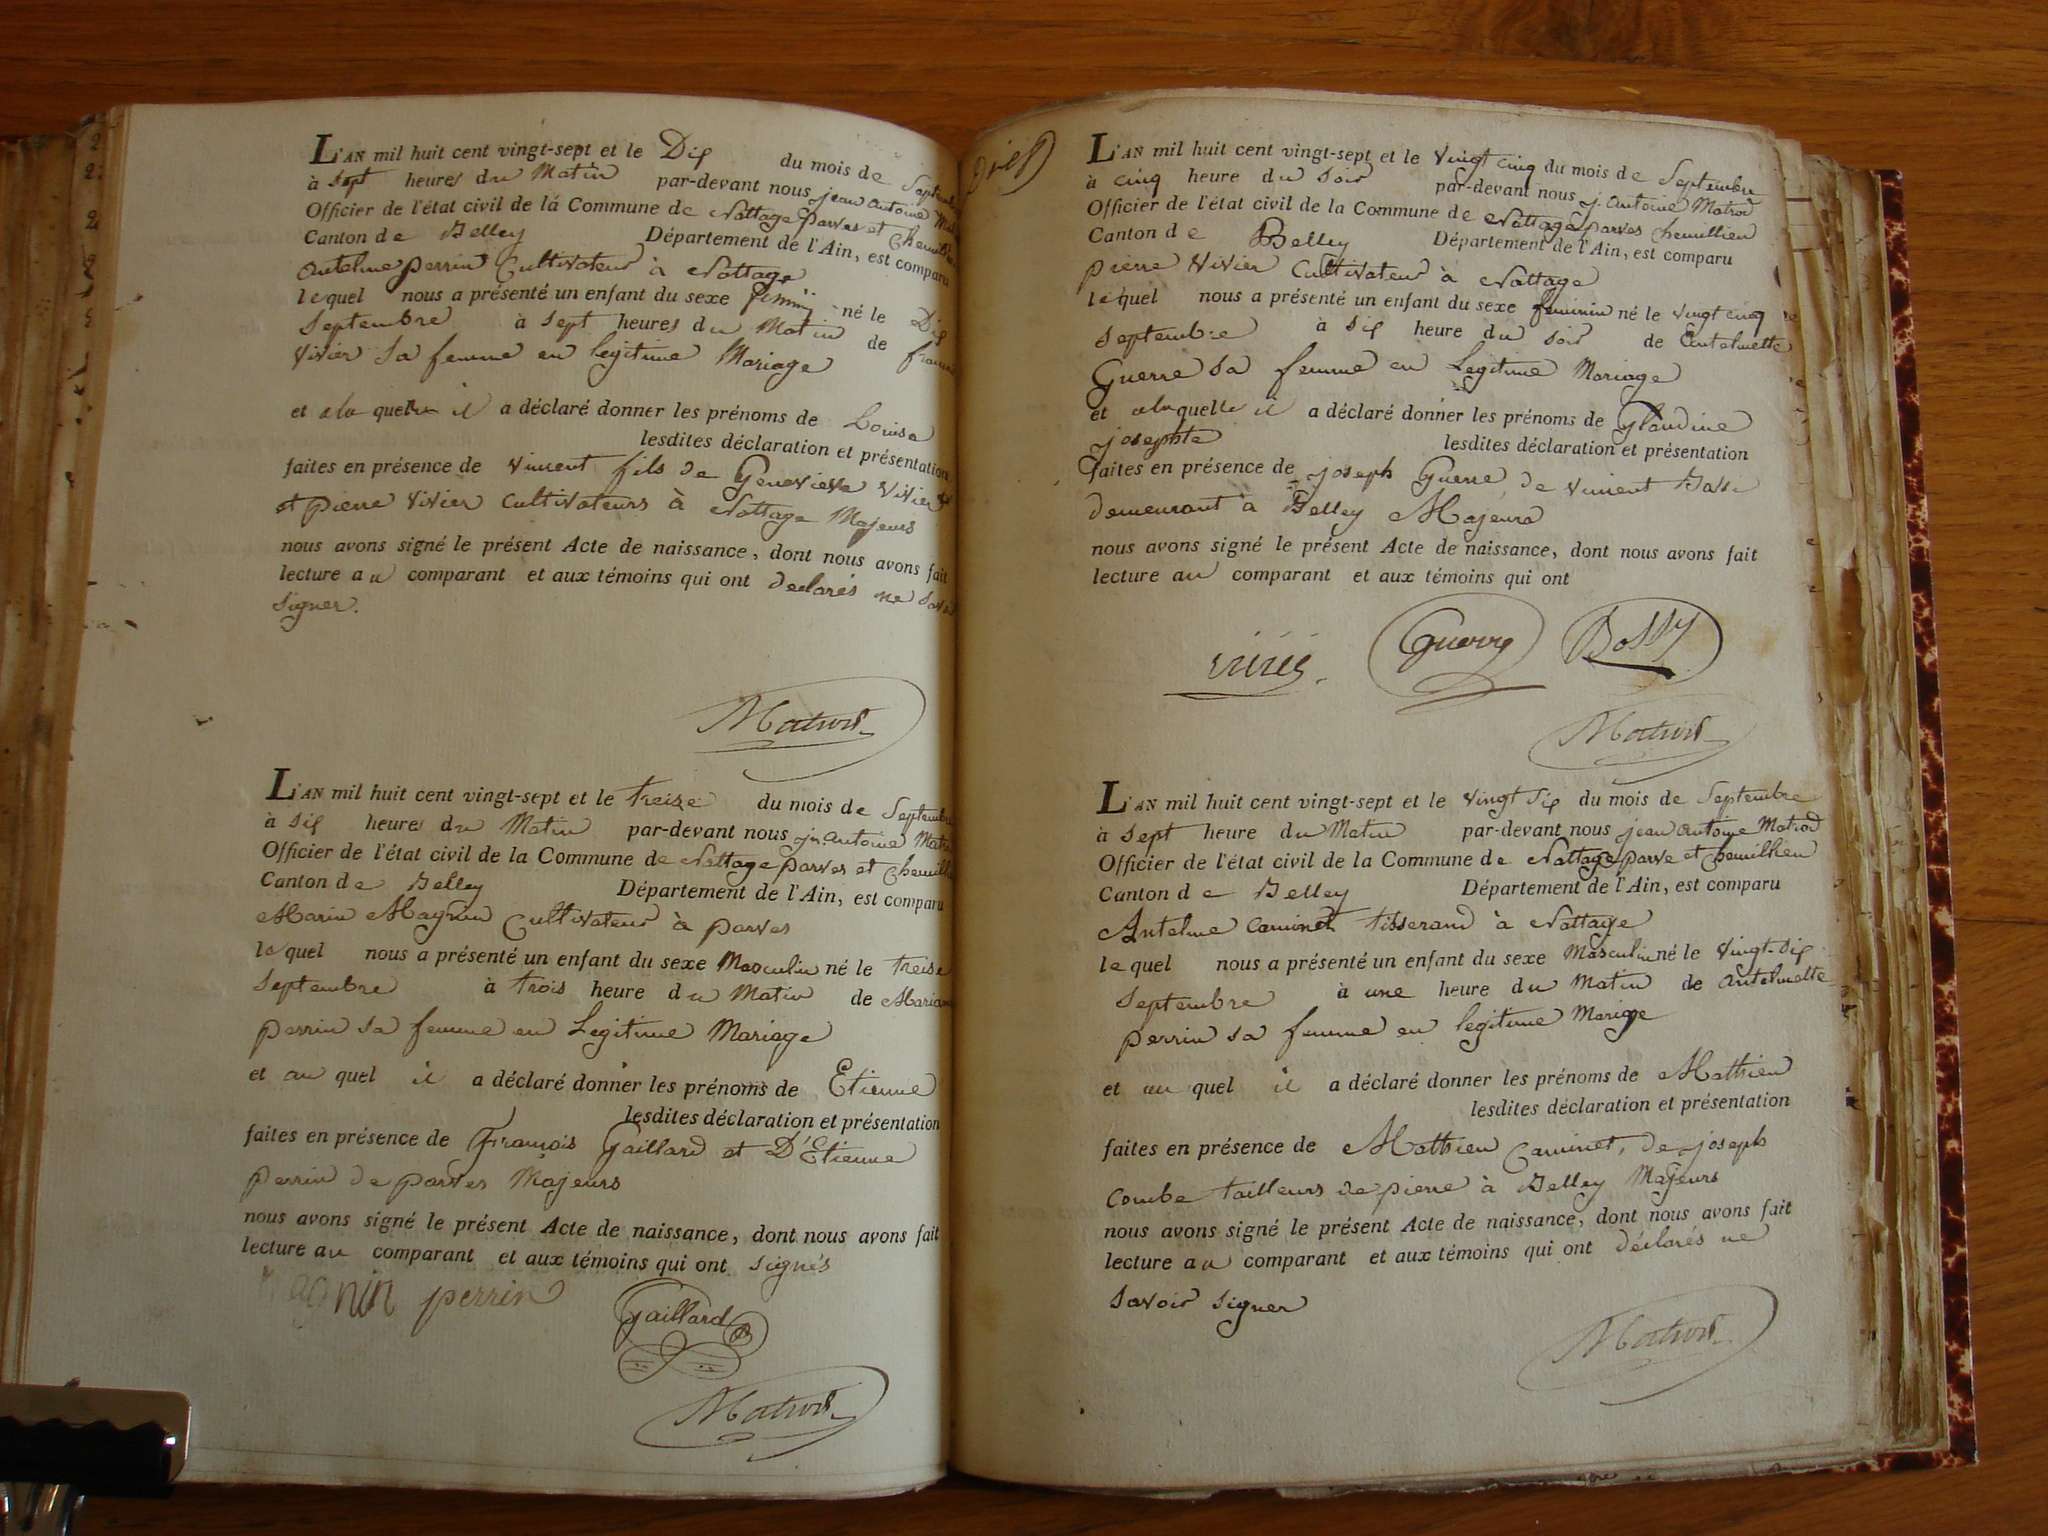 L'AN mil huit cent vingt-sept et le Dix du mois de Septembre
à sept heures du Matin par-devant nous jean antoine
Officier de l'état civil de la Commune de Nattage parves et
Canton de Belley Département de l'Ain, est comparu
antelme perrin Cultivateur à Nattage
lequel nous a présenté un enfant du sexe feminin né le Dix
Septembre à sept heures du Matin de
vivier sa femme en legitime Mariage
et a la quelle il a déclaré donner les prénoms de Louise
lesdites déclaration et présentation
faites en présence de vincent fils de Genevieve vivier
et pierre vivier cultivateurs à Nattage Majeurs
nous avons signé le présent Acte de naissance, dont nous avons fait
lecture au comparant et aux témoins qui ont declarés ne
signer.
Matrod
L'AN mil huit cent vingt-sept et le treize du mois de Septembre
à six heures du Matin par-devant nous jn. antoine
Officier de l'état civil de la Commune de Nattage parves et
Canton de Belley Département de l'Ain, est comparu
Marin Magnin Cultivateur à parves
lequel nous a présenté un enfant du sexe Masculin né le treise
Septembre à trois heure du Matin de
perrin sa femme en Legitime Mariage
et au quel il a déclaré donner les prénoms de Etienne
lesdites déclaration et présentation
faites en présence de François Gaillard et D'Etienne
perrin de parves Majeurs
nous avons signé le présent Acte de naissance, dont nous avons fait
lecture au comparant et aux témoins qui ont signés
Magnin perrin Gaillard
Matrod
L'AN mil huit cent vingt-sept et le vingt cinq du mois de Septembre
à cinq heure du soir par-devant nous j. antoine Matrod
Officier de l'état civil de la Commune de Nattage parves chemillien
Canton de Belley Département de l'Ain, est comparu
pierre vivier cultivateur à Nattage
lequel nous a présenté un enfant du sexe feminin né le vingt cinq
septembre à six heure du soir de Antelmette
Guerre sa femme en Legitime Mariage
et a la quelle il a déclaré donner les prénoms de Glaudine
josephte lesdites déclaration et présentation
faites en présence de joseph Guerre, de vincent
demeurant à Belley Majeurs
nous avons signé le présent Acte de naissance, dont nous avons fait
lecture au comparant et aux témoins qui ont
Guerre Bossy
Matrod
L'AN mil huit cent vingt-sept et le vingt six du mois de Septembre
à sept heure du Matin par-devant nous jean antoine Matrod
Officier de l'état civil de la Commune de Nattage parve et chemillien
Canton de Belley Département de l'Ain, est comparu
Antelme Caminet tisserand à Nattage
lequel nous a présenté un enfant du sexe Masculin né le vingt-six
septembre à une heure du Matin de antelmette
perrin sa femme en legitime Mariage
et au quel il a déclaré donner les prénoms de Mathieu
lesdites déclaration et présentation
faites en présence de Mathieu Caminet, de joseph
Combe tailleurs de pierre à Belley Majeurs
nous avons signé le présent Acte de naissance, dont nous avons fait
lecture au comparant et aux témoins qui ont déclarés ne
savoir signer
Matrod